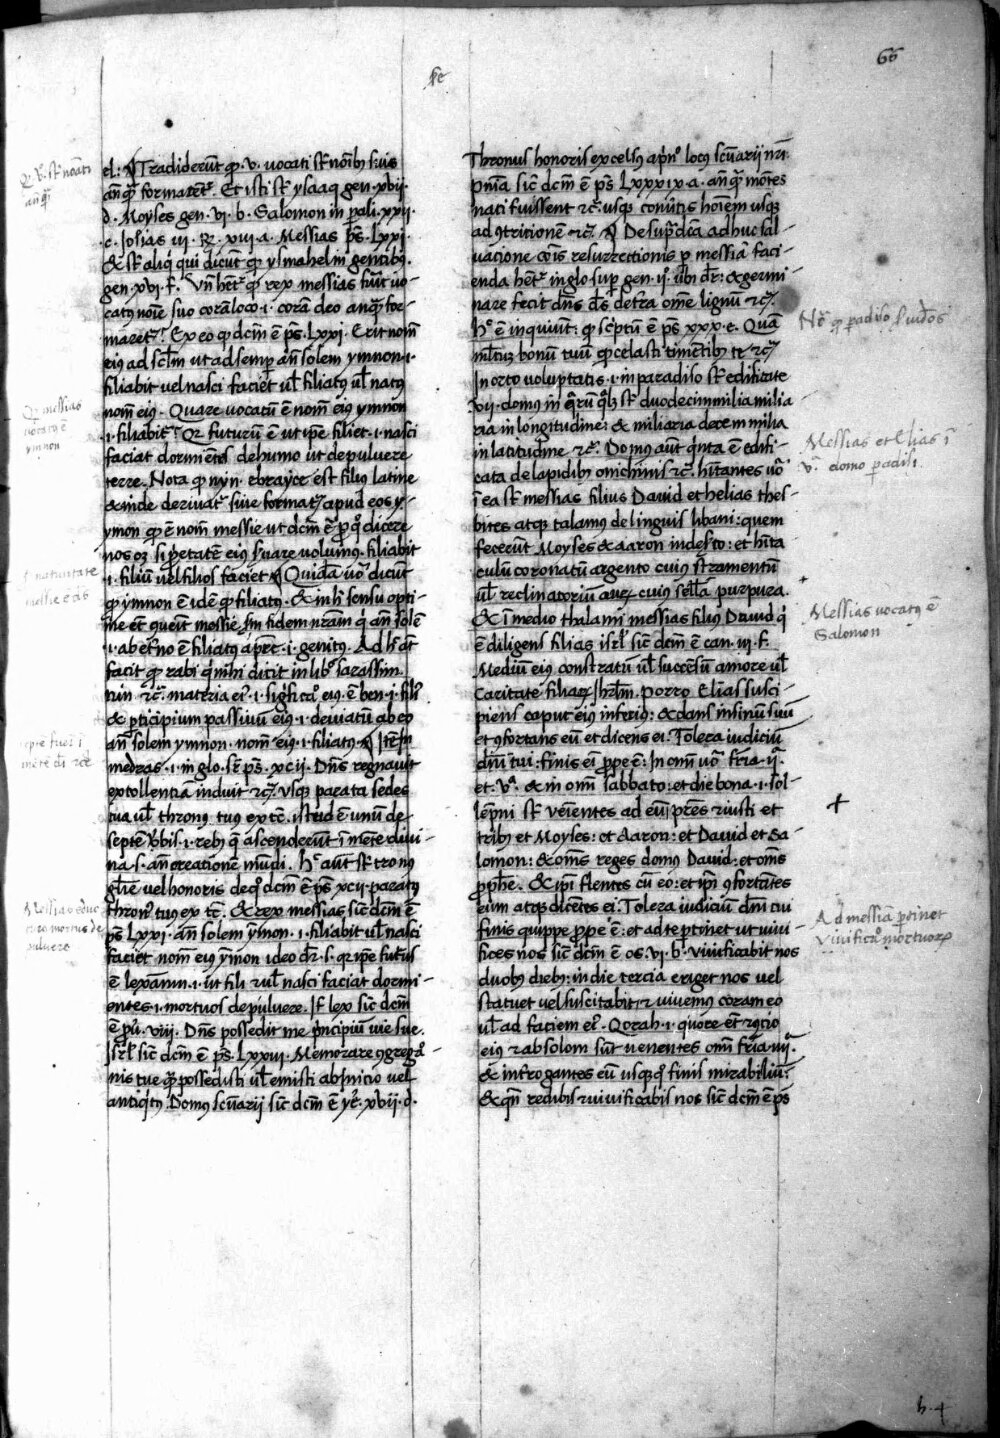 66
el: Tradiderūt qꝫ .v. vocati sūt noībꝫ suis
añq̄ȝ formarent᷑. Et isti sūt ysaaq gen .xvii.
d. Moyses gen .vi. b. Salomon in parali .xxii.
.c. Iosias iii .Rꝫ .xiii .a. Messias ps̄ .Lxxi.
& sūt aliq̇ qui dicūt qꝫ ysmahelin gentibꝫ.
gen .xvi .f. Vn̄ het᷑ qꝫ rex messias fuit vo-
catꝰ noīe suo corā loco .i. corā deo anq̄ȝ for-
maret᷑? Ex eo qꝫ dcm̄ ē ps̄ .Lxxi. Erit nom̄
eiꝰ ad scl̄m ut ad semp̱ añ solem ymnon .i.
filiabit vel nasci faciet ul̄ filiatꝰ ul̄ natꝰ
nom̄ eiꝰ. Quare vocatū ē nom̄ eiꝰ ymnon
.i. filiabit᷑? Qꝛ futurū ē ut ip̄e filiet .i. nasci
faciat dormiētes de humo ut de puluere
terre. Nota qꝫ nyn. ebrayce est filiꝰ latine
& inde deriuat᷑ siue format᷑ apud eos y-
ymon qꝫ ē nom̄ messie ut dcm̄ ē
nos oꝫ si p̱etatē eiꝰ s̄uare volumꝰ filiabit
.i. filiū vel filios faciet Quidā uō dicūt
qꝫ ymnon ē idē qꝫ filiatꝰ. & in h̄ sensu opti-
me ēt queīt messie scḋm fidem nr̄am q̇ añ solē
.i. ab et̄no ē filiatꝰ a pr̄e .i. genitꝰ. Ad h̄ āt
facit qꝫ rabi q̇mhi dicit in libº sarassim.
nun ⁊c̄. materia eiꝰ .i. significaº eiꝰ ē ben .i. filiꝰ
& p̱ticipium passiuū eiꝰ .i. deriuatū ab eo
añ solem ymnon. nom̄ eiꝰ .i. filiatꝰ Itē in
medras .i. in glo. sr̄ ps̄ .xcii. Dn̄s regnauit
extollentiā induit ⁊c̄. Vsqꝫ parata sedes
tua ul̄ thronꝰ tuꝰ ex tc̄. istud ē unū de
septē v̄bis .i. rebꝫ q̄ ascenderūt ī mēte diui-
na .s. añ creationē mūdi. h̄c aūt sūt tronꝰ
gl̄ie vel honoris de qº dcm̄ ē ps̄ xcii. paratꝰ
thronꝰ tuꝰ ex tc̄. & rex messias sic̄ dcm̄ ē
ps̄ Lxxi. añ solem ymon .i. filiabit ul̄ nasci
faciet nom̄ eiꝰ ymon ideo dr̄ .s. qꝛ ip̄e futꝰ
ē .i. ut fili ⁊ ul̄ nasci faciat dormi-
entes .i. mortuos de puluere. Itē lex sic̄ dcm̄
ē pu̇ .viii. Dn̄s possedit me p̱ncipiū uie sue.
Isrl̄ sic̄ dcm̄ ē ps̄ .Lxxiii. Memorare ꝯgregaº-
nis tue q̄ȝ possedisti ul̄ emisti ab inicio vel
antiq̇tꝰ. Domꝰ scūarii sic̄ dcm̄ ē yꝛ̄ .xvii .d.
Thronus honoris excelsꝰ a p̱nº locꝰ scūarii nr̄i.
pn̄ia sic̄ dcm̄ ē ps̄ Lxxxix .a. añq̄ȝ mōtes
nati fuissent ⁊c̄. usqꝫ conu̇tis hoīem usqꝫ
ad ꝯtritionē ⁊c̄. De sup̱dcā adhuc sal-
uacione oīs resurrectionis p̱ messiā faci-
enda het᷑ in glo sup̱ gen .iiº. Vbi dr̄: & germi-
nare fecit dn̄s ds̄ de tr̄a omē lignū ⁊c̄.
hº ē inquiūt: qꝫ sc̄ptū ē ps̄ xxx .e. Quā
ml̄titꝰ bonū tuū qꝫ celasti timētibꝰ te ⁊c̄.
In orto voluptatis .i. in paradiso sūt edificate
.vii. domꝰ in q̄rū q̄lꝫ sūt duodecim milia milia-
ria in longitudine: & miliaria decem milia
in latitudine ⁊c̄. Domꝰ aūt q̇nta ē edifi-
cata de lapidibꝫ onichinis ⁊c̄. hītantes uº
ī ea sūt messias filius Dauid et helias thes-
bites atqꝫ talamꝰ de linguis libani: quem
fecerūt Moyses & aaron in deserto: et hīta-
culū coronatū argento cuiꝰ stramentū
ul̄ reclinatoriū aureū cuiꝰ sella purpura.
& ī medio thalami messias filiꝰ Dauid q̇
ē diligens filias isrl̄ sic̄ dcm̄ ē can .iii .f.
Mediū eiꝰ constratū ul̄ succēsū amore ul̄
caritate filiaꝝ ihrl̄m. Porro Elias susci-
piens caput eiꝰ infexiº: & dans in sinū suū
et ꝯfortans eū et dicens ei. Tolera iudiciū
dn̄i tui: finis eī p̱pe ē: In omī uº fr̄ia .ii.ª
et .v.ª & in omī sabbato: et die bona .i. sol-
lēpni sūt veīentes ad eū pr̄es ⁊ iusti et
tribꝰ et Moyses: et Aaron: et Dauid et Sa-
lomon: & om̄s reges domꝰ Dauid: et om̄s
p̱phe. & ip̄i flentes cū eo: et ip̄i ꝯfortātes
eum atqꝫ dicētes ei. Tolera iudiciū dn̄i tui
finis quippe p̱pe ē: et ad te p̱tinet ut uiui-
fices nos sic̄ dcm̄ ē os .vi. b. Viuificabit nos
duobꝫ diebꝫ: in die tercia eriget nos vel
statuet vel suscitabit: ⁊ uiuemꝰ coram eo
ul̄ ad faciem eiꝰ. Qorah .i. quore ēt
eiꝰ ⁊ absolom sūt venientes omī fr̄ia .iiii.ª
& introgantes eū usqꝫ qº finis mirabiliū:
& qn̄ redibis ⁊ uiuificabis nos sic̄ dcm̄ ē ps̄
Messias et Elias ī
v.ª domo paradisi
Messias vocatꝰ ē
Salomon
Ad messiā p̱tinet
viuificaº mortuoꝝ
h.4